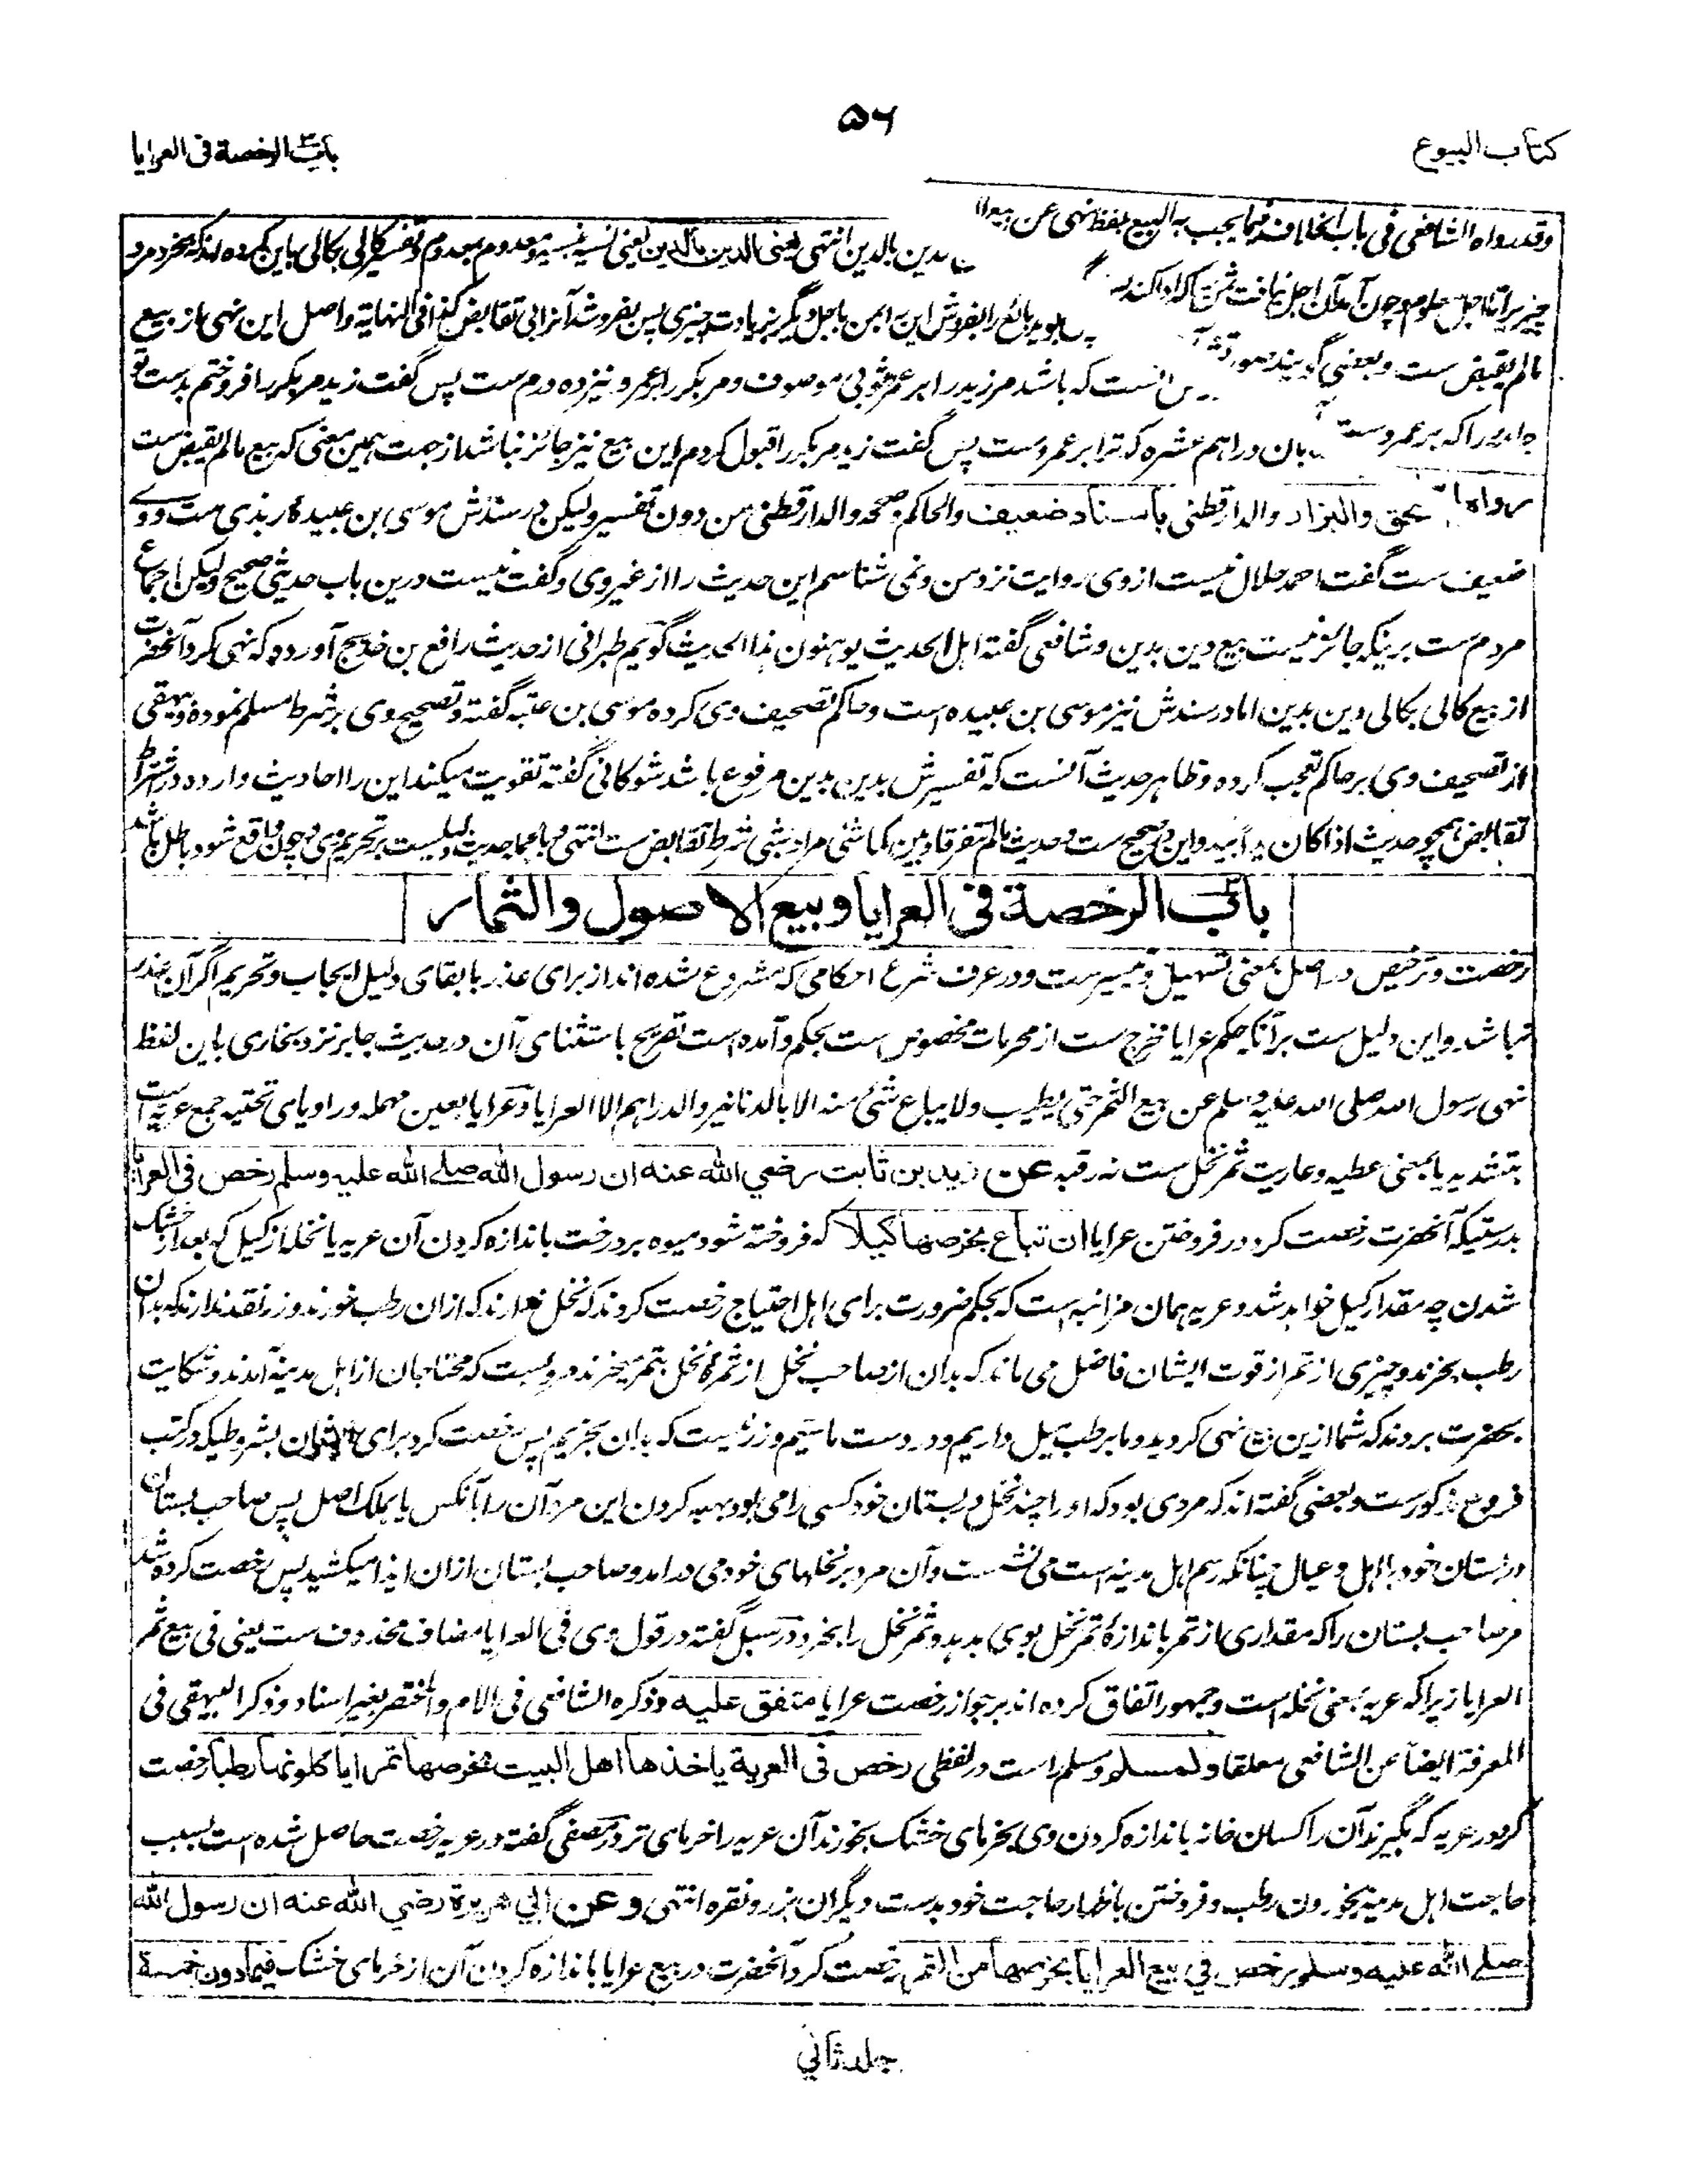 ۵۶
کتاب البیوع
باب الرخصة فی العرایا
وقد رواه الشافعی فی باب الخلاف فیما یجب به البیع بلفظ نهی عن بیع الدین بالدین انتهی یعنی الدین بالدین یعنی نسیه بنسیه و معدوم بمعدوم و تفسیر کالی بکالی باین کرده اند که بخرد مرد
چیزیرا تا اجل معلوم و چون آمد آن اجل نیافت ثمن را که ادا کند پس بگوید بائع را بفروش این به من باجل دیگر بزیادت چیزی پس بفروشد آنرا بی تقابض کذا فی النهایة و اصل این نهی از بیع
مالم یقبض ست و بعضی گویند صورتش آنست که باشد مر زید را بر عمر ثوبی موصوف و مر بکر را بر عمرو نیز ده درم ست پس گفت زید مر بکر را فروختم بدست تو
را که بر عمروست بآن دراهم عشره که ترا بر عمروست پس گفت زید مر بکر را قبول کردم این بیع نیز جائز نباشد از جهت همین معنی که بیع مالم یقبض ست
رواه اسحق والبزار والدارقطنی باسناد ضعیف والحاکم و صححه والدارقطنی من دون تفسیر ولیکن در سندش موسی بن عبیده ربذی ست و وے
ضعیف ست گفت احمد حلال نیست از وی روایت نزد من و نمی شناسم این حدیث را از غیر وی و گفت نیست درین باب حدیثی صحیح ولیکن اجماع
مردم ست برینکه جائز نیست بیع دین بدین و شافعی گفته اهل الحدیث یوهنون هذا الحدیث گویم طبرانی از حدیث رافع بن خدیج آورده که نهی کرد آنحضرت
از بیع کالی بکالی دین بدین اما در سندش نیز موسی بن عبیده است و حاکم تصحیف وی کرده موسی بن عتبه گفته و تصحیح وی بر شرط مسلم نموده و بیهقی
از تصحیف وی بر حاکم تعجب کرده و ظاهر حدیث آنست که تفسیرش بدین بدین مرفوع باشد شوکانی گفته تقویت میکند این را احادیث وارده در اشتراط
تقابض همچو حدیث اذا کان یدا بید و این در صحیح ست و حدیث مالم تفرقا و بینکما شئی مراد بشی شرط تقابض ست انتهی و بالجمله حدیث دلیلست بر تحریم وی و چون واقع شود باطل باشد
باب الرخصة فی العرایا و بیع الاصول والثمار
رخصت و ترخیص در اصل بمعنی تسهیل و تیسیرست و در عرف شرع احکامی که مشروع شده اند از برای عذر با بقای دلیل ایجاب و تحریم اگر آن عذر
نباشد و این دلیل ست بر آنکه حکم عرایا مخرج ست از محرمات مخصوص ست بحکم و آمده است تصریح باستثنای آن در حدیث جابر نزد بخاری باین لفظ
نهی رسول الله صلی الله علیه وسلم عن بیع الثمر حتی یطیب ولا یباع شئ منه الا بالدنانیر والدراهم الا العرایا و عرایا بعین مهمله و را و یای تحتیه جمع عریه است
بتشدید یا بمعنی عطیه و عاریت ثمر نخل ست نه رقبه عن زید بن ثابت رضی الله عنه ان رسول الله صلے الله علیه وسلم رخص فی العرایا
بدرستیکه آنحضرت رخصت کرد در فروختن عرایا ان تباع بخرصها کیلا که فروخته شود میوه بر درخت باندازه کردن آن عریه یا نخله از کیل که بعد از خشک
شدن چه مقدار کیل خواهد شد و عریه همان مزابنه است که بحکم ضرورت برای اهل احتیاج رخصت کردند که نخل ندارند که ازان رطب خورند و زر نقد ندارند که بدان
رطب بخرند و چیزی از تمر از قوت ایشان فاضل می ماند که بدان از صاحب نخل از ثمره نخل بتمر بخرند مرویست که محتاجان از اهل مدینه آمدند و شکایت
بحضرت بردند که شما ازین بیع نهی کردید و ما برطب میل داریم و در دست ما سیم و زر نیست که بدان بخریم پس رخصت کرد برای ایشان بشروطیکه در کتب
فروع مذکورست و بعضی گفته اند که مردی بود که او را چند نخل در بستان خود کسی را می بود بهبه کردن این مرد آن را بآنکس یا بملک اصل پس صاحب بستان
در بستان خود با اهل و عیال چنانکه رسم اهل مدینه است می نشست و آن مرد بر نخلهای خود می درامد و صاحب بستان ازان ایذا میکشید پس رخصت کرده شد
مر صاحب بستان را که مقداری از تمر باندازهٔ تمر نخل بوی بدهد و ثمر نخل را بخرد و در سبل گفته در قول وی فی العرایا مضاف محذوف ست یعنی فی بیع ثمر
العرایا زیرا که عریه بمعنی نخله است و جمهور اتفاق کرده اند بر جواز رخصت عرایا متفق علیه وذکره الشافعی فی الام والمختصر بغیر اسناد وذکر البیهقی فی
المعرفة ایضا عن الشافعی معلقا ولمسلم و مسلم راست در لفظی رخص فی العریة یاخذها اهل البیت بخرصها تمرا یاکلونها رطبا رخصت
کرد در عریه که بگیرند آن را کسان خانه باندازه کردن وی بخرمای خشک بخورند آن عریه را خرمای تر و در مصفی گفته در عریه رخصت حاصل شده است بسبب
حاجت اهل مدینه بخوردن رطب و فروختن باظهار حاجت خود بدست دیگران بزر و نقره انتهی وعن ابی هریرة رضی الله عنه ان رسول الله
صلے الله علیه وسلم رخص فی بیع العرایا بخرصها من التمر رخصت کرد آنحضرت در بیع عرایا باندازه کردن آن از خرمای خشک فیما دون خمسة
جلد ثانی